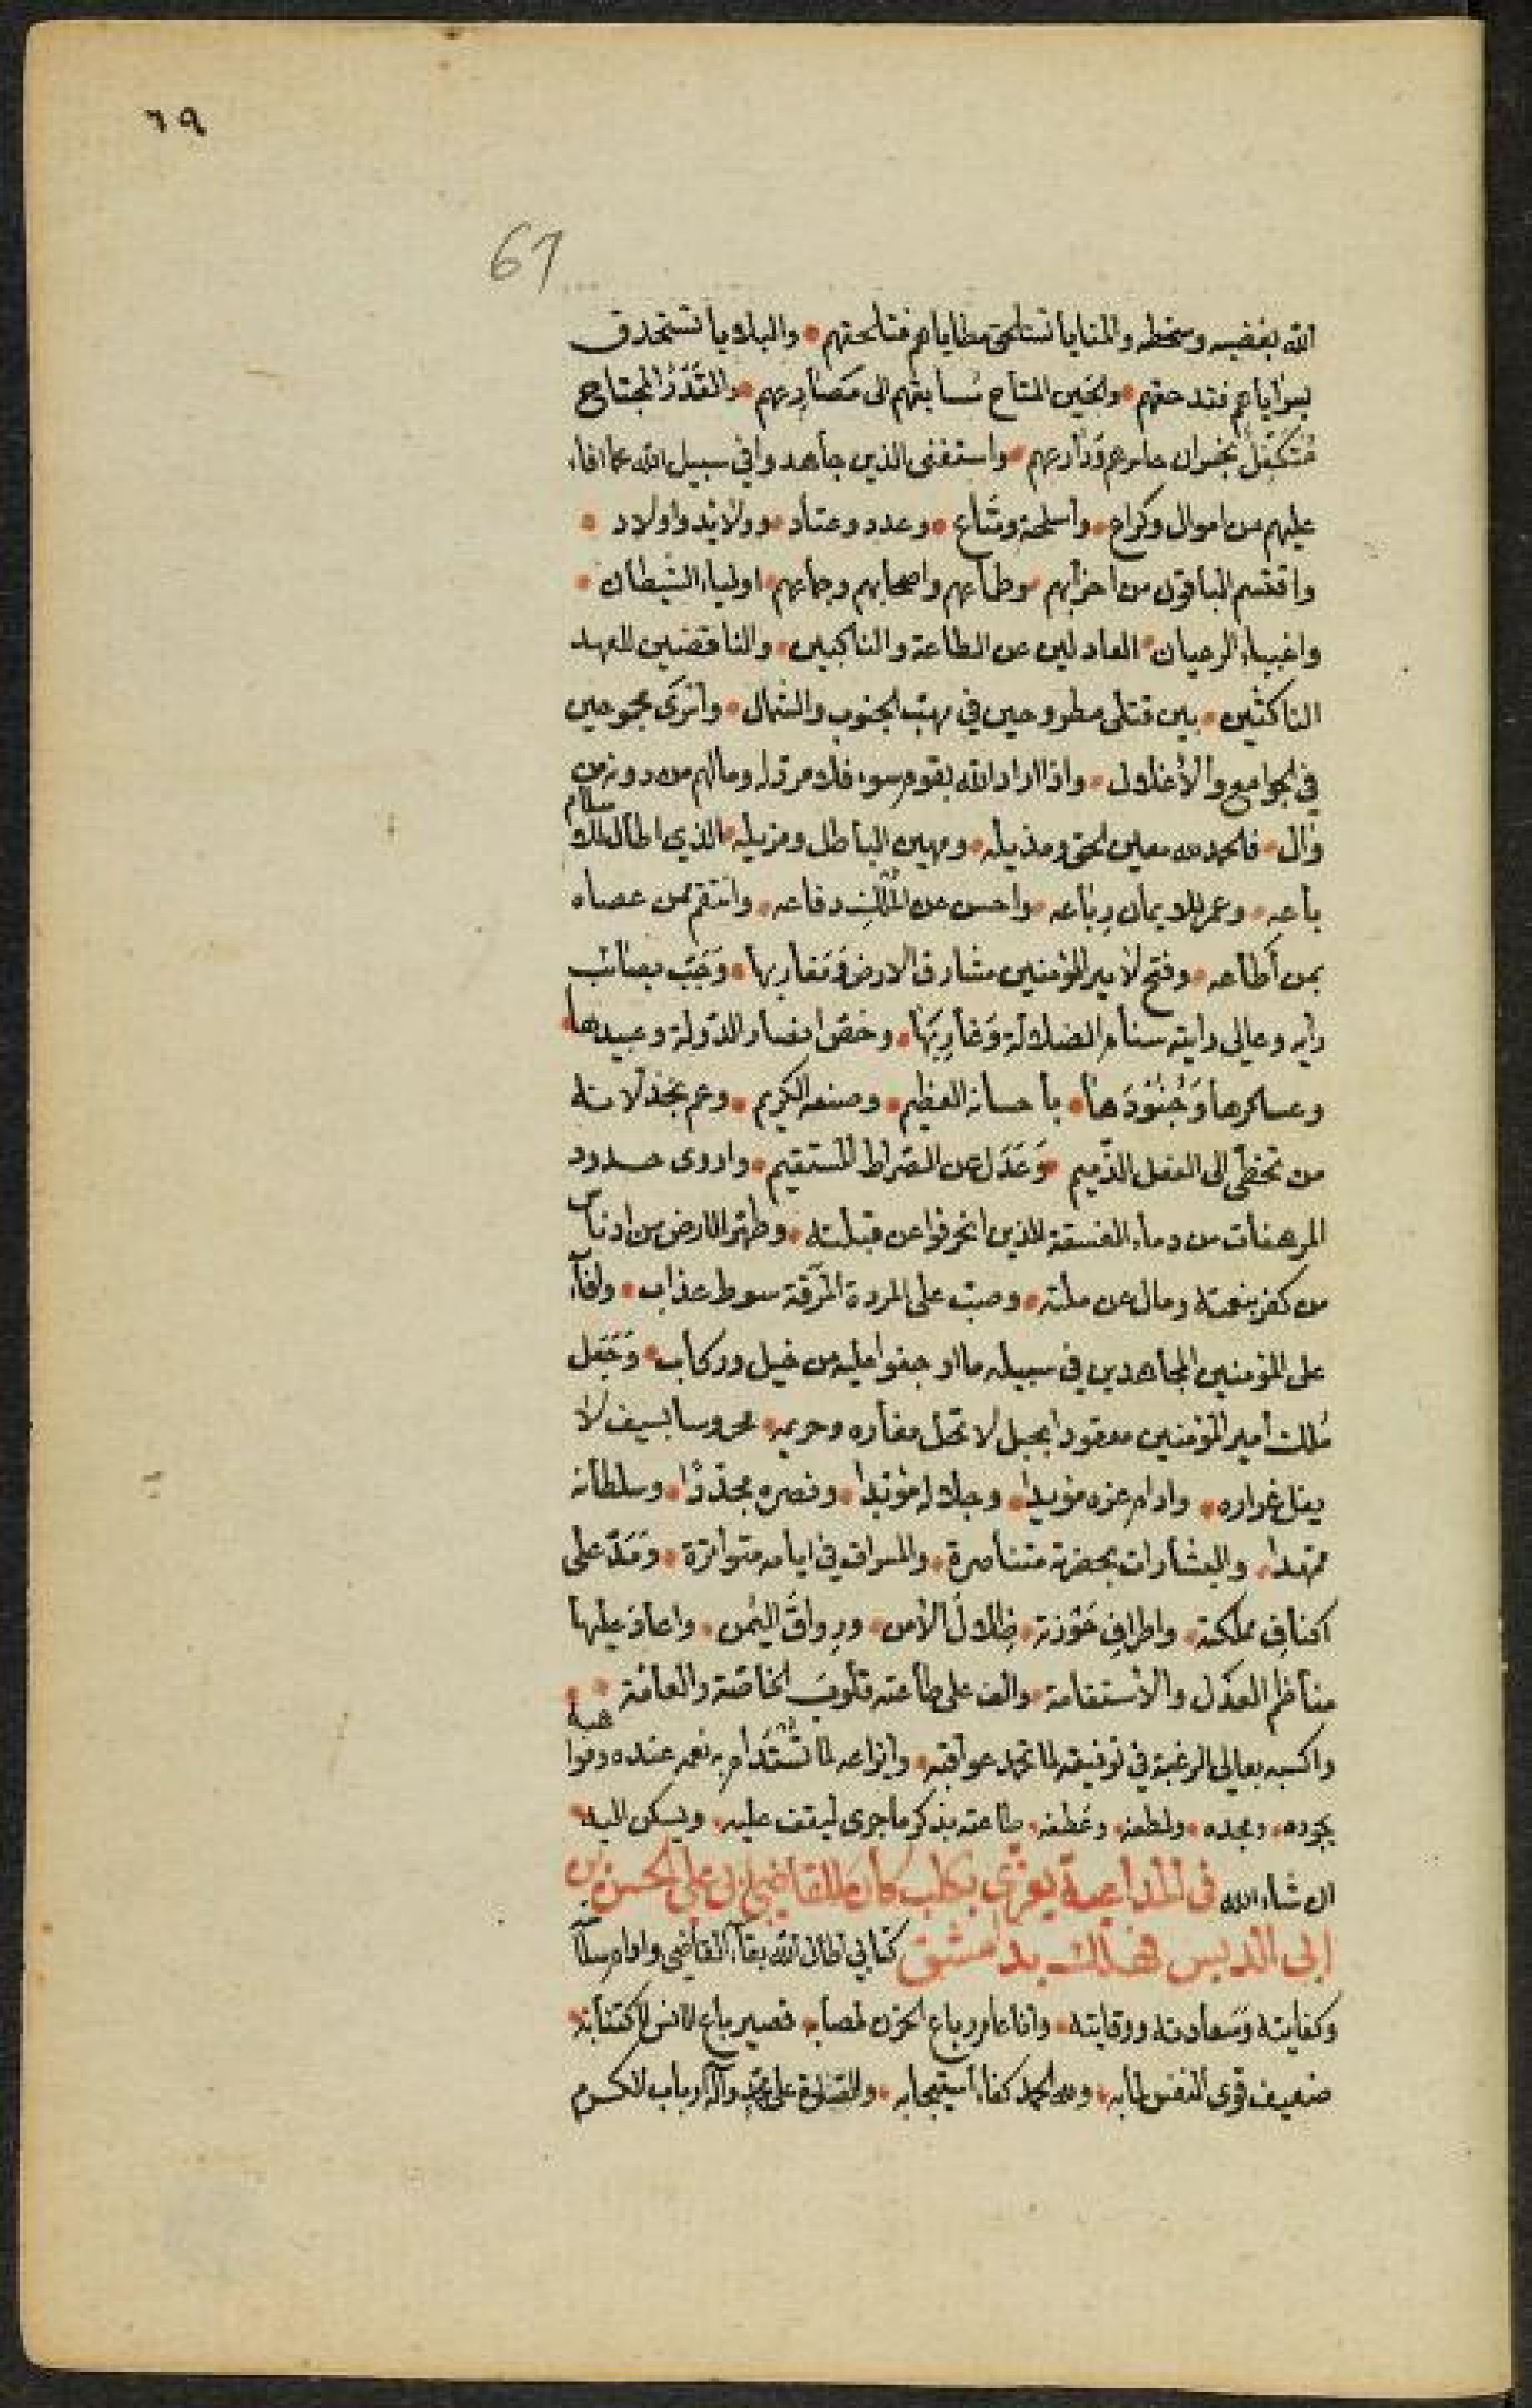 ٦٩
67
الله بغضبه وسخطه والمنايا تستلحق مطاياهم فتلحقهم • والبلايا تستحذق
بسراياهم فتدحقهم • والحين المتاح سابقهم الى مصارعهم • والقدر المجتاح
متكفل بخسران دارعهم • واستغنى الذين جاهدوا في سبيل الله مما افاء
عليهم من اموال وكراع • واسلحة ومتاع • وعدد وعتاد • وولائد واولاد •
واقتسم الباقون من احزابهم وطاءهم واصحابهم وحماءهم • اولياء الشيطان •
واغبياء الرعيان • العادلين عن الطاعة والناكبين • والناقضين للعهد
الناكثين • بين قتلى مطروحين في مهب الجنوب والشمال • واسرى مجموعين
في الجوامع والأغلال • واذا اراد الله بقوم سوء فلا مرد له وما لهم من دونه من
وال • فالحمد لله معين الحق ومذيله • ومهين الباطل ومزيله • الذي اطال للاسلام
باعه • وعمر للايمان رباعه • واحسن عن الملك دفاعه • وانتقم ممن عصاه
بمن أطاعه • وفتح لأمير المؤمنين مشارق الارض ومغاربها • وجب بصائب
رأيه وعالي رايته سنام الضلالة وغاربها • وخص انصار الدولة وعبيدها •
وعساكرها وجنودها • باحسانه العظيم • وصنعه الكريم • وعم بخذلانه
من تخطى الى الفعل الذميم • وعدل عن الصراط المستقيم • واروى حدود
المرهفات من دماء الفسقة الذين انحرفوا عن قبلته • وطهر الارض من ادناس
من كفر بنعمته ومال عن ملته • وصب على المردة المرقة سوط عذاب • وافاء
على المؤمنين المجاهدين في سبيله ما اوجفوا عليه من خيل وركاب • وجعل
ملك أمير المؤمنين معقودا بحبل لا تحل مغاره وحريمه • محروسا بسيف لا
يفل غراره • وادام عزه مؤيدا • وجلاله مؤبدا • ونصره مجددا • وسلطانه
ممهدا • والبشارات بحضرته متناصرة • والمسرات في ايامه متواترة • ومد على
اكناف مملكته • واطراف حوزته • ظلال الأمن • ورواق اليمن • واعاد عليها
مناظم العدل والأستقامة • والف على طاعته قلوب الخاصة والعامة •
واكسبه بعالي الرغبة في توفيقه لما تحمد عواقبه • وايزاعه لما تستدام به نعمه عنده ومواهبه
بجوده • ومجده • ولطفه • وعطفه • طالعته بذكر ما جرى ليقف عليه • ويسكن اليه •
ان شاء الله في المداعبة يعزي بكلب كان للقاضي ابي علي الحسن بن
ابي الديس فهلك بدامشق كتابي اطال الله بقاء القاضي وادام سلامته
وكفايته وسعادته ووقايته • وانا عامر رباع الحزن لمصابه • قصير باع الانس لاكتئابه •
ضعيف قوى النفس لما به • ولله الحمد كفاء استيجابه • والصلوة على محمد وآله ارباب الكرم